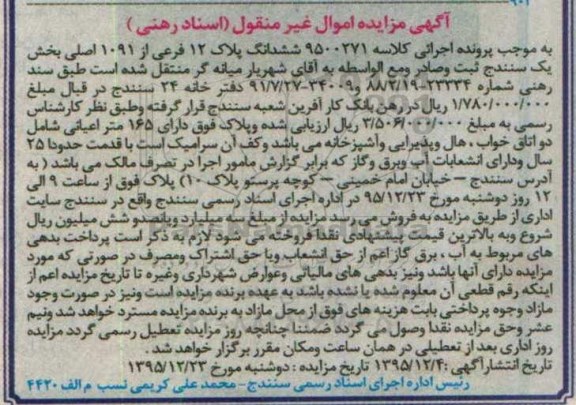 آگهی مزایده اموال غیر منقول (اسناد رهنی)
به موجب پرونده اجرائی کلاسه ۹۵۰۰۲۷۱ ششدانگ پلاک ۱۲ فرعی از ۱۰۹۱ اصلی بخش
یک سنندج ثبت وصادر ومع الواسطه به آقای شهریار میانه گر منتقل شده است طبق سند
رهنی شماره ۲۳۳۳۴-۸۸/۲/۱۹ و ۳۴۰۰۹-۹۱/۷/۲۷ دفتر خانه ۲۴ سنندج در قبال مبلغ
۱/۷۸۰/۰۰۰/۰۰۰ ریال در رهن بانک کار آفرین شعبه سنندج قرار گرفته وطبق نظر کارشناس
رسمی به مبلغ ۳/۵۰۶/۰۰۰/۰۰۰ ریال ارزیابی شده وپلاک فوق دارای ۱۶۵ متر اعیانی شامل
دو اتاق خواب ، هال وپذیرایی وآشپزخانه می باشد وکف آن سرامیک است با قدمت حدودا ۲۵
سال ودارای انشعابات آب وبرق وگاز که برابر گزارش مامور اجرا در تصرف مالک می باشد ( به
آدرس سنندج – خیابان امام خمینی – کوچه پرستو پلاک ۱۰) پلاک فوق از ساعت ۹ الی
۱۲ روز دوشنبه مورخ ۹۵/۱۲/۲۳ در اداره اجرای اسناد رسمی سنندج واقع در سنندج سایت
اداری از طریق مزایده به فروش می رسد مزایده از مبلغ سه میلیارد وپانصدو شش میلیون ریال
شروع وبه بالاترین قیمت پیشنهادی نقدا فروخته می شود لازم به ذکر است پرداخت بدهی
های مربوط به آب ، برق گاز اعم از حق انشعاب ویا حق اشتراک ومصرف در صورتی که مورد
مزایده دارای آنها باشد ونیز بدهی های مالیاتی وعوارض شهرداری وغیره تا تاریخ مزایده اعم از
اینکه رقم قطعی آن معلوم شده یا نشده باشد به عهده برنده مزایده است ونیز در صورت وجود
مازاد وجوه پرداختی بابت هزینه های فوق از محل مازاد به برنده مزایده مسترد خواهد شد ونیم
عشر وحق مزایده نقدا وصول می گردد ضمننا چنانچه روز مزایده تعطیل رسمی گردد مزایده
روز اداری بعد از تعطیلی در همان ساعت ومکان مقرر برگزار خواهد شد .
تاریخ انتشار آگهی :۱۳۹۵/۱۲/۴ تاریخ مزایده : دوشنبه مورخ ۱۳۹۵/۱۲/۲۳
رئیس اداره اجرای اسناد رسمی سنندج- محمد علی کریمی نسب م الف ۴۴۲۰